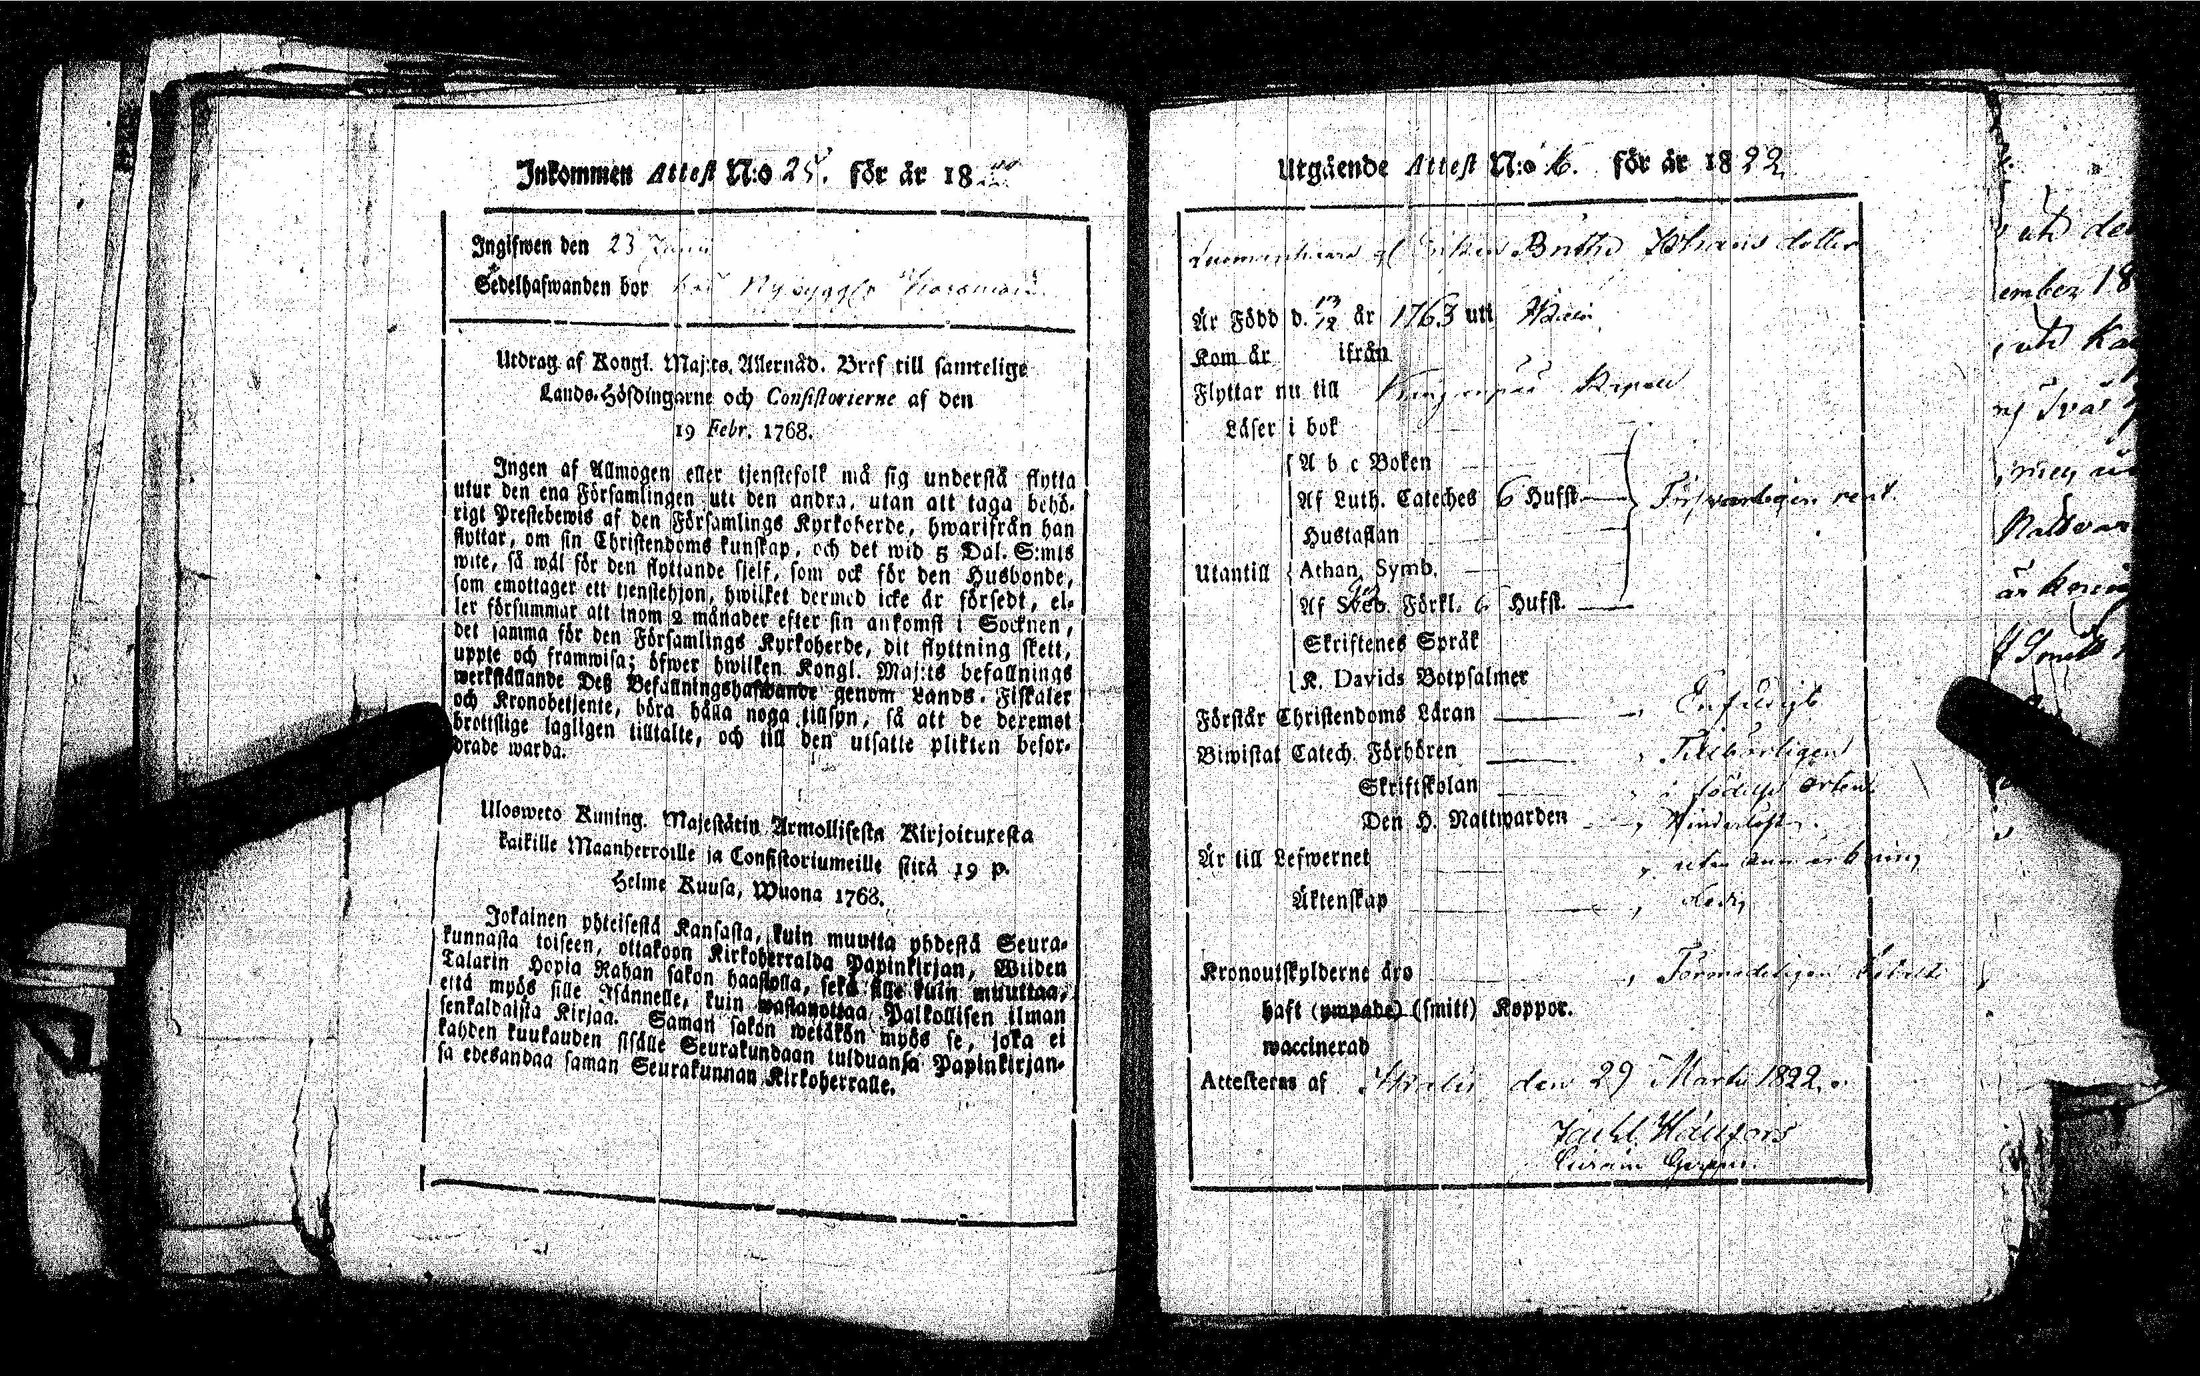 Inkommen Attest N:o 25. för år 18
Ingifwen den 23
Sedelhafwanden bor hos Nybyggr
Utdrag af Kongl. Maj:ts. Allernåd. Bref till samtelige
Lands-Höfdingarne och Consistorierne af den
19 Febr. 1768.
Ingen af Allmogen eller tjenstefolk må sig understå flytta
utur den ena Församlingen uti den andra, utan att taga behö-
rigt Prestebewis af den Församlings Kyrkoherde, hwarifrån han
flyttar, om sin Christendoms kunskap, och det wid 5 Dal. S:mts
wite, så wäl för den flyttande sjelf, som ock för den Husbonde,
som emottager ett tjenstehjon, hwilket dermed icke är försedt, el-
ler försummar att inom 2 månader efter sin ankomst i Socknen,
det samma för den Församlings Kyrkoherde, dit flyttning skett,
uppte och framwisa; öfwer hwilken Kongl. Maj:ts befallnings
werkställande Deß Befallningshafwande genom Lands-Fiskaler
och Kronobetjente, böra hålla noga tillsyn, så att de deremot
brottslige lagligen tilltalte, och till den utsatte plikten befor-
drade warda.
Ulosweto Kuning. Majestätin Armollisesta Kirjoituxesta
kaikille Maanherroille ja Consistoriumeille siitä 19 p.
Helme Kuusa, Wuona 1768.
Jokainen yhteisestä Kansasta, kuin muutta yhdestä Seura-
kunnasta toiseen, ottakoon Kirkoherralda Papinkirjan, Wiiden
Talarin Hopia Rahan sakon haastolla, sekä sille kuin muuttaa,
että myös sille Isännelle, kuin wastanottaa Palkollisen ilman
senkaldaista Kirjaa. Saman sakon wetäkön myös se, joka ei
kahden kuukauden sisälle Seurakundaan tulduansa Papinkirjan-
sa edesandaa saman Seurakunnan Kirkoherralle.
Utgående Attest N:o 16. för år 1822
Britha Johans dotter
Är Född d. 13/12 år 1763 uti
Kom år ifrån
Flyttar nu till Kapell
Läser i bok
A b c Boken
Af Luth. Cateches 6 Hufst. Försvarligen rent.
Hustaflan
Utantill Athan. Symb.
Af Sveb. Förkl. 6 Hufst.
Skriftenes Språk
K. Davids Botpsalmer
Förstår Christendoms Läran Enfaldigt
Biwistat Catech. Förhören Tillbörligen
Skriftskolan i födelse orten
Den H. Nattwarden
Är till Lefwernet utan anmärkning
Äktenskap ledig
Kronoutskylderne äro Förmodeligen
haft (ympade) (smitt) Koppor.
waccinerad
Attesteras af den 29 Martii 1822.